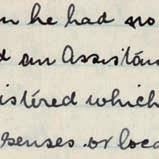 n he had no
d an Assistan
istered which
senses or loca